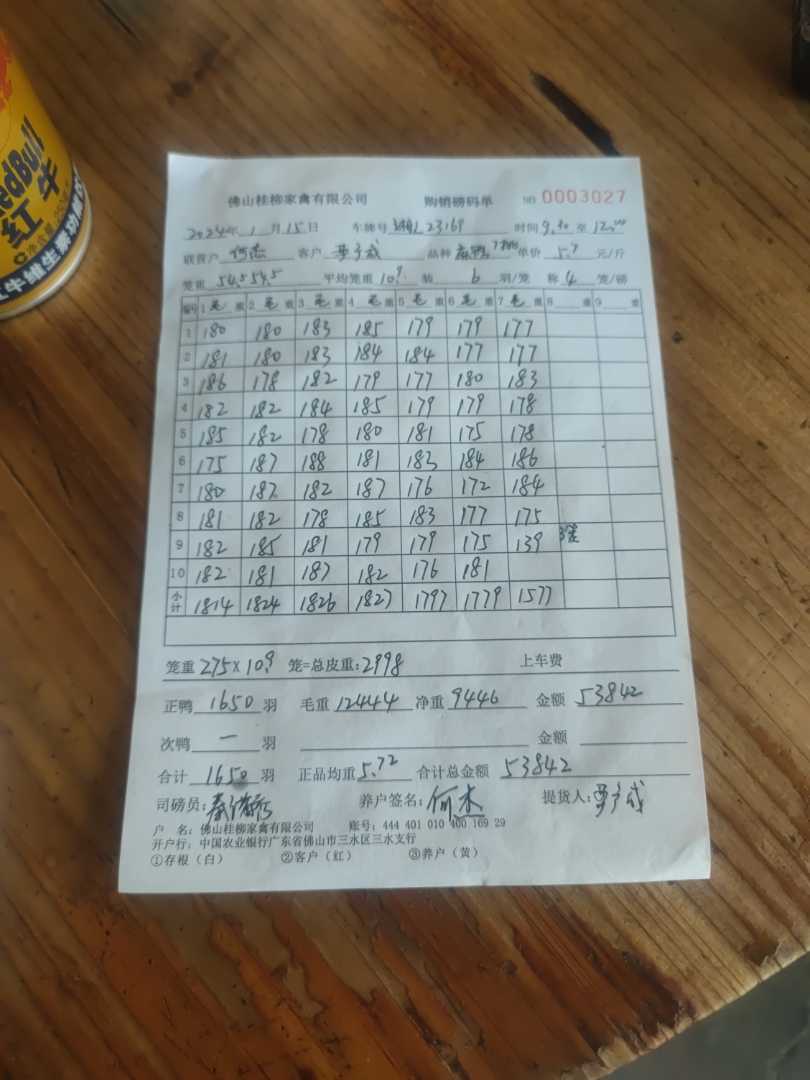 RedBull
红牛
佛山桂柳家禽有限公司 购销磅码单 NO 0003027
2024年 1 月 15 日 车牌号 23169 时间 9.30 至 12.00
联营户 何杰 客户 品种 麻鸭 单价 5.7 元/斤
笼重 54.5 54.5 平均笼重 10.9 装 6 羽/笼 称 4 笼/磅
编号 1 毛 重 2 毛 重 3 毛 重 4 毛 重 5 毛 重 6 毛 重 7 毛 重 8 重 9 重
1 180 180 183 185 179 179 177
2 181 180 183 184 184 177 177
3 186 178 182 179 177 180 183
4 182 182 184 185 179 179 178
5 185 182 178 180 181 175 178
6 175 187 188 181 183 184 186
7 180 187 182 187 176 172 184
8 181 182 178 185 183 177 175
9 182 185 181 179 179 175 139
10 182 181 187 182 176 181
小计 1814 1824 1826 1827 1797 1779 1577
笼重 275×10.9 笼=总皮重:2998 上车费
正鸭 1650 羽 毛重 12444 净重 9446 金额 53842
次鸭 一 羽 金额
合计 1650 羽 正品均重 5.72 合计总金额 53842
司磅员: 养户签名: 何杰 提货人:
户 名: 佛山桂柳家禽有限公司 账号: 444 401 010 400 169 29
开户行: 中国农业银行广东省佛山市三水区三水支行
①存根（白） ②客户（红） ③养户（黄）